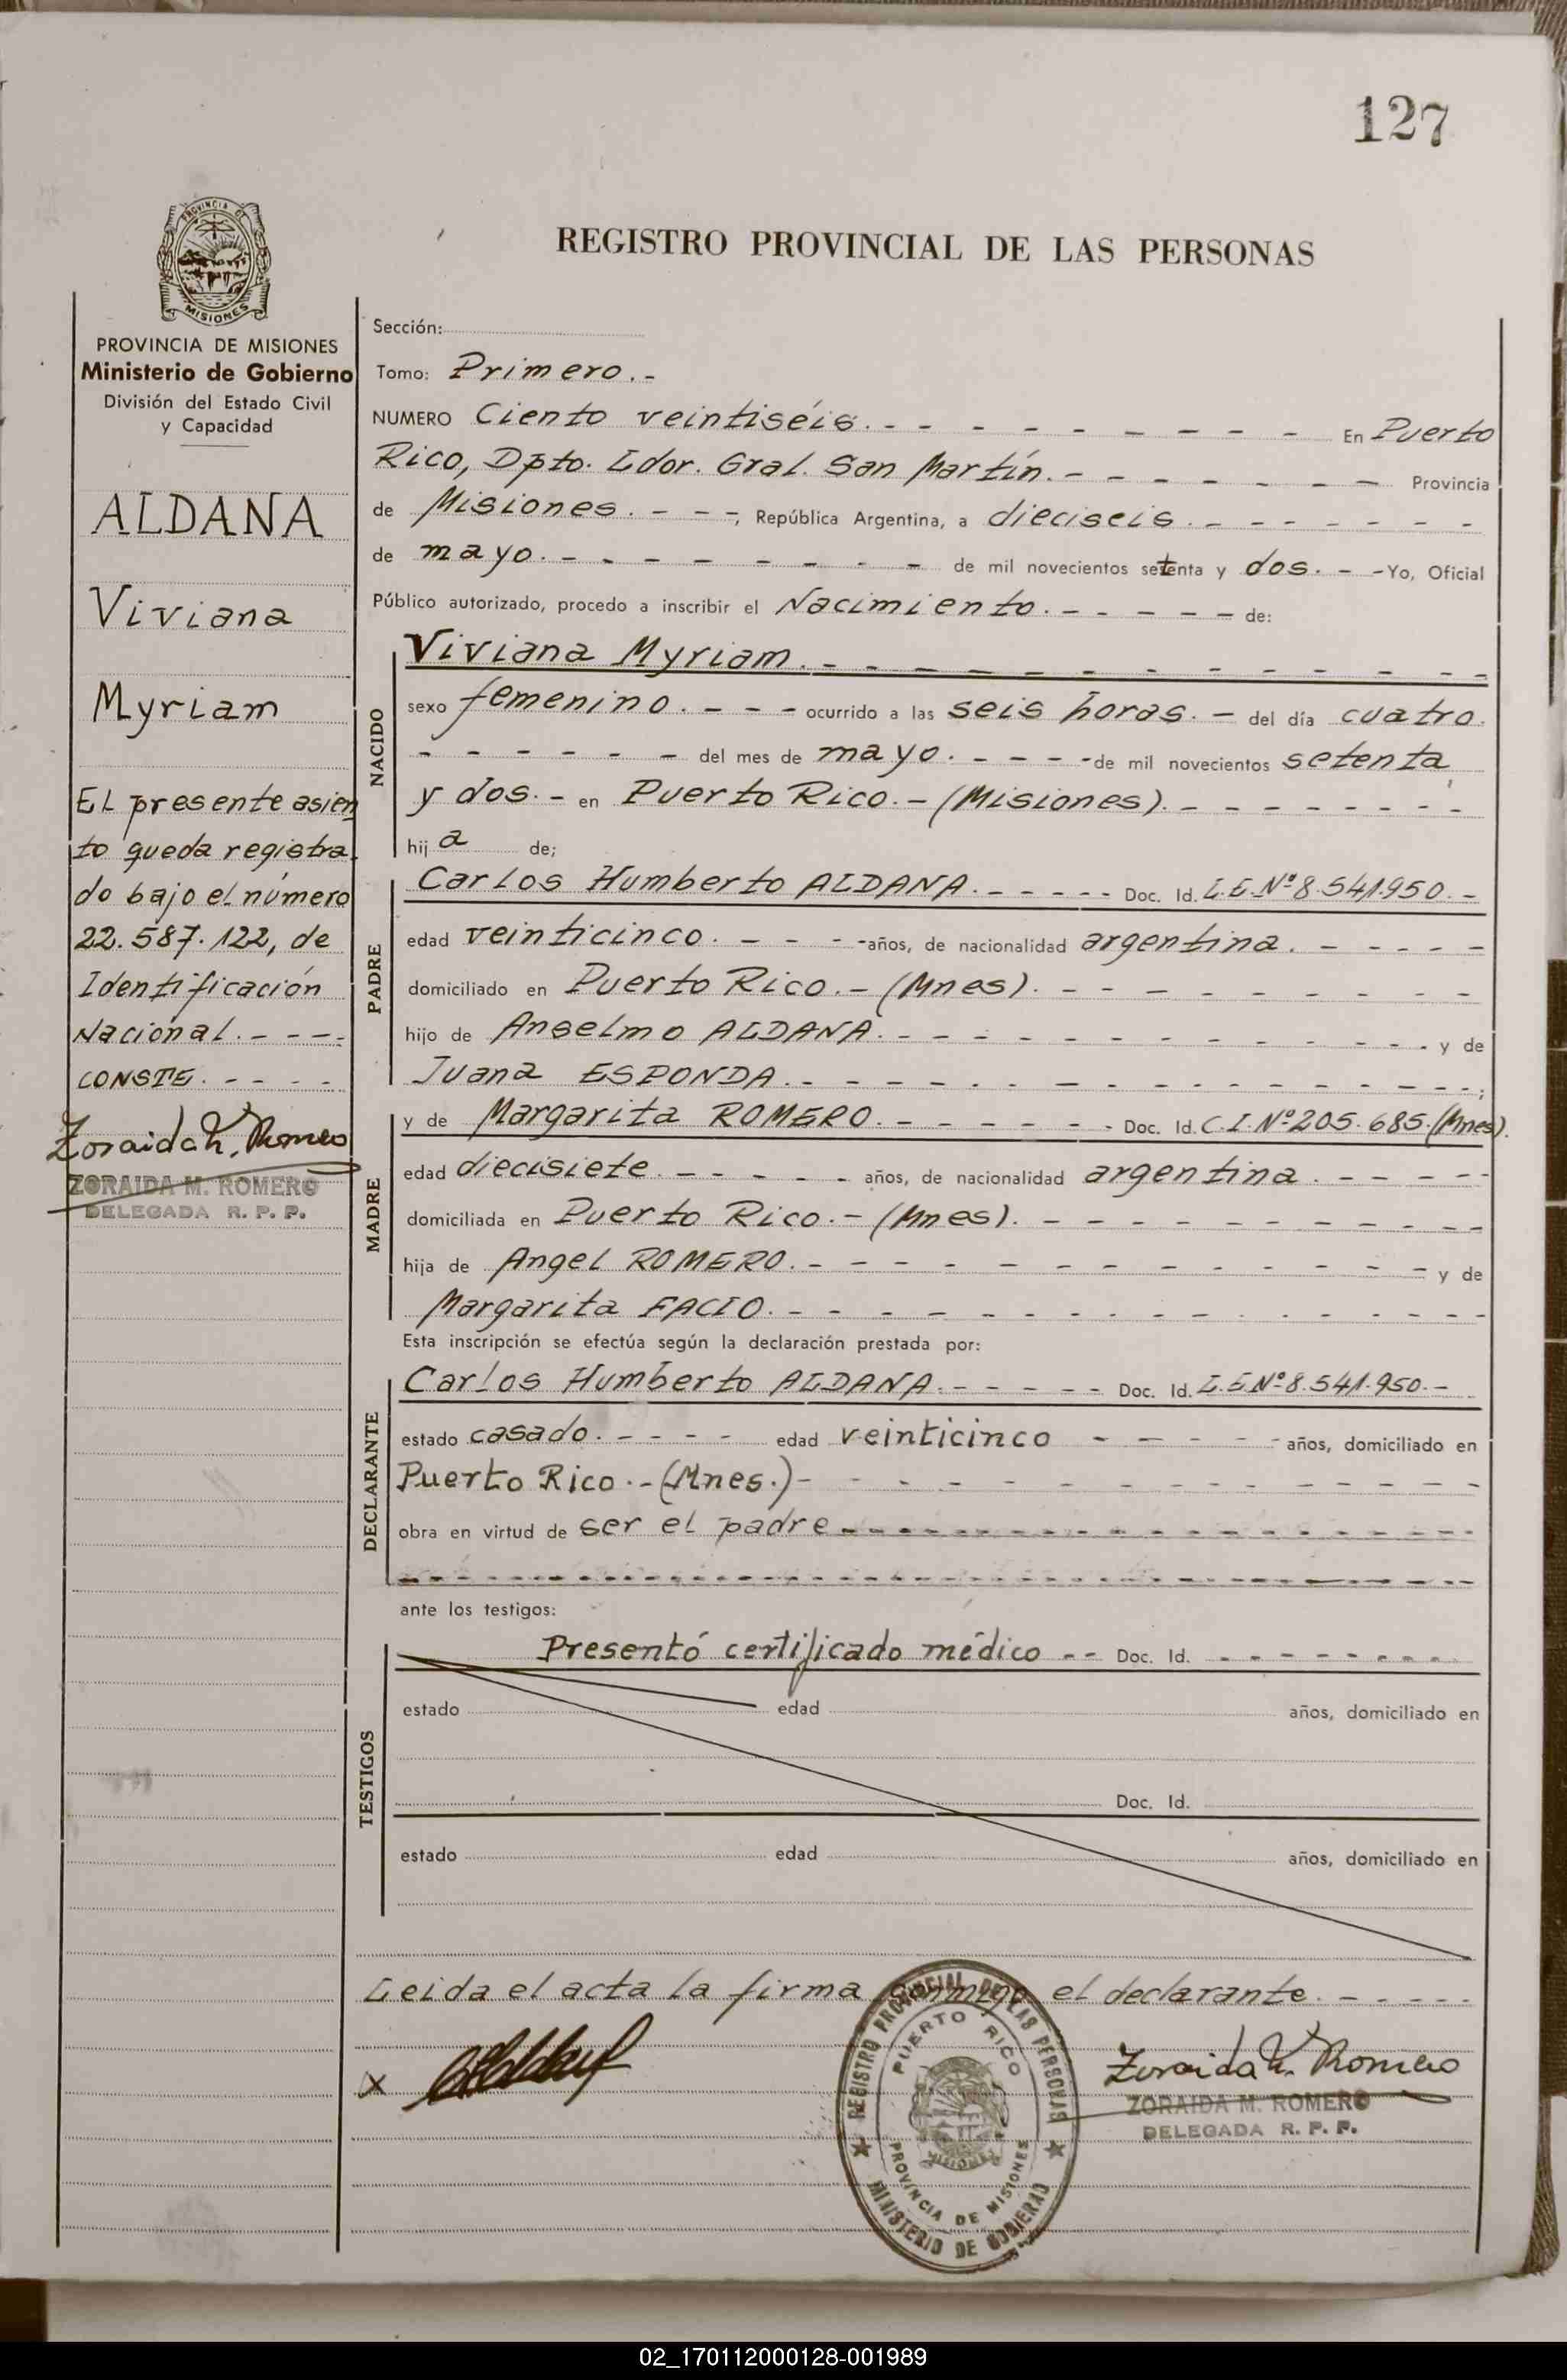 127
PROVINCIA DE
MISIONES
REGISTRO PROVINCIAL DE LAS PERSONAS
PROVINCIA DE MISIONES
Ministerio de Gobierno
División del Estado Civil
y Capacidad
ALDANA
Viviana
Myriam
El presente asien
to queda registra
do bajo el número
22.587.122, de
Identificación
Nacional. - - - -
CONSTE. - - - -
Zoraida M. Romero
ZORAIDA M. ROMERO
DELEGADA R. P. P.
Sección:
Tomo: Primero. -
NUMERO Ciento veintiséis. - - - - - - - - - En Puerto
Rico, Dpto. Ldor. Gral. San Martín. - - - - - - - Provincia
de Misiones. - - -, República Argentina, a dieciseis. - - - - - - -
de mayo. - - - - - - - - de mil novecientos setenta y dos. - - Yo, Oficial
Público autorizado, procedo a inscribir el Nacimiento. - - - - - de:
NACIDO
Viviana Myriam. - - - - - - - - - - - - -
sexo femenino. - - - ocurrido a las seis horas. - del día cuatro.
- - - - - - del mes de mayo. - - - - de mil novecientos setenta
y dos. - en Puerto Rico. - (Misiones). - - - - - - - -
hij a de;
PADRE
Carlos Humberto ALDANA. - - - - - Doc. Id. L.E. Nº 8.541.950. -
edad veinticinco. - - - - años, de nacionalidad argentina. - - - - -
domiciliado en Puerto Rico. - (Mnes). - - - - - - - - -
hijo de Anselmo ALDANA. - - - - - - - - - - - - y de
Juana ESPONDA. - - - - - - - - - - - - - - - ;
MADRE
y de Margarita ROMERO. - - - - - - Doc. Id. C.I. Nº 205.685. (Mnes).
edad diecisiete. - - - - - años, de nacionalidad argentina. - - - - -
domiciliada en Puerto Rico. - (Mnes). - - - - - - - - - -
hija de Angel ROMERO. - - - - - - - - - - - - y de
Margarita FACIO. - - - - - - - - - - - - - - -
Esta inscripción se efectúa según la declaración prestada por:
DECLARANTE
Carlos Humberto ALDANA. - - - - - Doc. Id. L.E. Nº 8.541.950. -
estado casado. - - - - edad veinticinco - - - - - años, domiciliado en
Puerto Rico. - (Mnes.) - - - - - - - - - - - - -
obra en virtud de ser el padre - - - - - - - - - - - - - - - -
- - - - - - - - - - - - - - - - - - - - - - - - - - - -
ante los testigos:
TESTIGOS
Presentó certificado médico - - Doc. Id. - - - - - - - - -
estado edad años, domiciliado en
Doc. Id.
estado edad años, domiciliado en
Leida el acta la firma conmigo el declarante. - - - - -
x
REGISTRO PROVINCIAL DE LAS PERSONAS
PUERTO RICO
MISIONES
PROVINCIA DE MISIONES
MINISTERIO DE GOBIERNO
Zoraida M. Romero
ZORAIDA M. ROMERO
DELEGADA R. P. P.
02_170112000128-001989